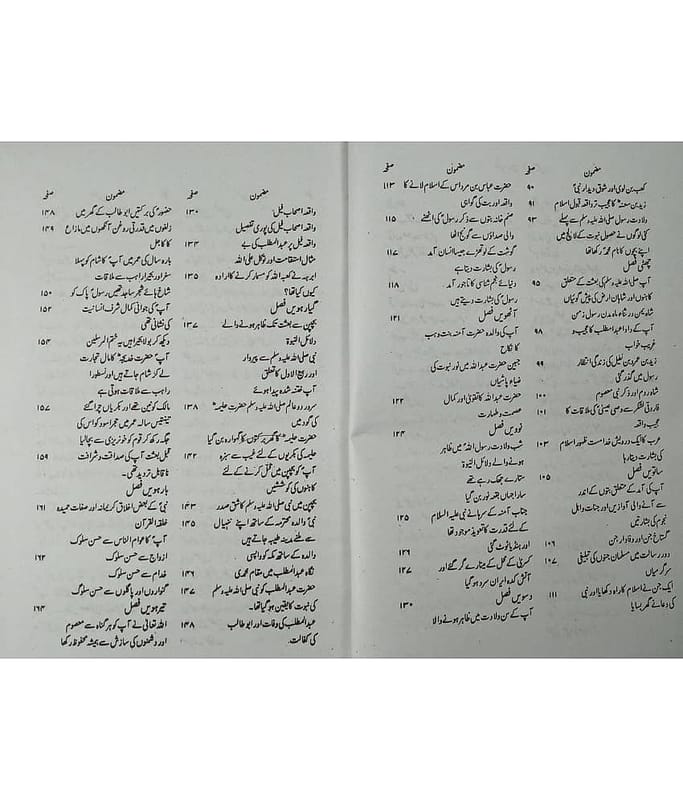 مضمون صفحہ
کعب بن لوی اور شوق دیدار نبیؐ ۹۰
زید بن سعنہؓ کا عجیب تر واقعہ قبول اسلام ۹۱
ولادت رسول صلی اللہ علیہ وسلم سے پہلے ۹۳
کئی لوگوں نے حصول نبوت کے لالچ میں
اپنے بچوں کا نام محمد رکھا تھا
چھٹی فصل
آپ صلی اللہ علیہ وسلم کی بعثت کے متعلق ۹۵
کاہنوں اور شاہان ارض کی پیش گوئیاں
شاہ یمن در شناہ ماہ مدن رسول زمن
آپ کے دادا عبدالمطلب کا عجیب و ۹۸
غریب خواب
زید بن عمرو بن نفیل کی زندگی انتظار ۹۹
رسول میں گذر گئی
شاہ روم اور ذکر نبی معصوم ۱۰۰
فاروقی لشکر سے وصی عیسیٰؑ کی ملاقات کا ۱۰۱
عجیب واقعہ
عرب کا ایک درویش خدامست ظہور اسلام ۱۰۳
کی بشارت دیتا رہا
ساتویں فصل ۱۰۵
آپ کی آمد کے متعلق بتوں کے اندر
سے آنے والی آوازیں اور جنات و اہل
نجوم کی بشارتیں
گستاخ جن اور وفادار جن ۱۰۶
دور رسالت میں مسلمان جنوں کی تبلیغی ۱۰۷
سرگرمیاں
ایک جن نے اسلام کا راہ دکھایا اور نبی ۱۱۱
کی دعا نے گھر بسایا
مضمون صفحہ
حضرت عباس بن مرداس کے اسلام لانے کا ۱۱۳
واقعہ اور بت کی گواہی
صنم خانہ بتوں سے ذکر رسولؐ کی اٹھنے ۱۱۵
والی صداؤں سے گونج اٹھا
گوشت کے لوتھڑے جیسا انسان آمد ۱۱۷
رسولؐ کی بشارت دیتا ہے
دنیائے نجم شناسی کا تاجور آمد ۱۱۸
رسولؐ کی بشارت دیتے ہیں
آٹھویں فصل ۱۲۱
آپ کی والدہ حضرت آمنہ بنت وہب
کا نکاح
جبین حضرت عبداللہ میں نور نبوت کی
ضیاء پاشیاں
حضرت عبداللہ کا تقویٰ اور کمال ۱۲۲
عصمت و طہارت
نوویں فصل ۱۲۴
شب ولادت رسول اللہؐ میں ظاہر
ہونے والے دلائل النبوۃ
ستارے جھک رہے تھے
سارا جہاں بقعہ نور بن گیا
جناب آمنہ کے سرہانے نبی علیہ السلام ۱۲۵
کے لئے قدرت کا تعویذ موجود تھا
اور ہنڈیا ٹوٹ گئی ۱۲۶
کسریٰ کے محل کے مینارے گر گئے اور ۱۲۷
آتش کدہ ایران سرد ہو گیا
دسویں فصل ۱۳۰
آپ کے سن ولادت میں ظاہر ہونے والا
مضمون صفحہ
واقعہ اصحاب فیل ۱۳۰
واقعہ اصحاب فیل کی پوری تفصیل
واقعہ فیل پر عبدالمطلب کی بے ۱۳۴
مثال استقامت اور توکل علی اللہ
ابرہہ نے کعبۃ اللہ کو مسمار کرنے کا ارادہ ۱۳۵
کیوں کیا تھا؟
گیارہویں فصل
بچپن سے بعثت تک ظاہر ہونے والے ۱۳۷
دلائل النبوۃ
نبی صلی اللہ علیہ وسلم سے پیر وار
اور ربیع الاول کا تعلق
آپؐ ختنہ شدہ پیدا ہوئے
سرور دو عالم صلی اللہ علیہ وسلم حضرت حلیمہؓ ۱۳۸
کی گود میں
حضرت حلیمہؓ کا گھر برکتوں کا گہوارہ بن گیا
حلیمہ کی بکریوں کے لئے غیب سے سبزہ ۱۴۲
آپؐ کو بچپن میں قتل کرنے کے لئے
کاہنوں کی کوششیں
بچپن میں نبی صلی اللہ علیہ وسلم کا شق صدر ۱۴۳
نبیؐ والدہ محترمہ کے ساتھ اپنے ننہیال ۱۴۵
سے ملنے مدینہ طیبہ جاتے ہیں
والدہ کے ساتھ مکہ کو واپسی
نگاہ عبدالمطلب میں مقام محمدی ۱۴۶
حضرت عبدالمطلب کو نبی صلی اللہ علیہ وسلم ۱۴۷
کی نبوت کا یقین ہو گیا تھا۔
عبدالمطلب کی وفات اور ابوطالب ۱۴۸
کی کفالت۔
مضمون صفحہ
حضورؐ کی برکتیں ابو طالب کے گھر میں ۱۴۸
زلفوں میں قدرتی روغن آنکھوں میں مازاغ ۱۴۹
کا کاجل
بارہ سال کی عمر میں آپؐ کا شام کو پہلا
سفر اور بحیرا راہب سے ملاقات
شاخ ہائے شجر ساجد تھیں رسولؐ پاک کو ۱۵۰
آپؐ کی جوانی کمال شرف انسانیت ۱۵۲
کی نشانی تھی
دیکھ کر بولا بحیرا ہیں یہ ختم المرسلین ۱۵۴
آپؐ حضرت خدیجہؓ کا مال تجارت
لے کر شام جاتے ہیں اور نسطورا
راہب سے ملاقات ہوتی ہے
مالک کونین تھے اور بکریاں چرا گئے ۱۵۷
پینتیس سالہ عمر میں حجر اسود کو اس کی
جگہ رکھ کر قوم کو خونریزی سے بچا لیا
قبل بعثت آپ کی صداقت و شرافت ۱۵۹
ناقابل تردید تھی۔
بارہویں فصل
نبیؐ کے بعض اخلاق کریمانہ اور صفات حمیدہ ۱۶۱
خلقہ القرآن
آپؐ کا عوام الناس سے حسن سلوک
ازواج سے حسن سلوک ۱۶۲
خدام سے حسن سلوک
گنواروں اور پاگلوں سے حسن سلوک
تیرہویں فصل ۱۶۴
اللہ تعالیٰ نے آپ کو ہر گناہ سے معصوم
اور دشمنوں کی سازش سے ہمیشہ محفوظ رکھا